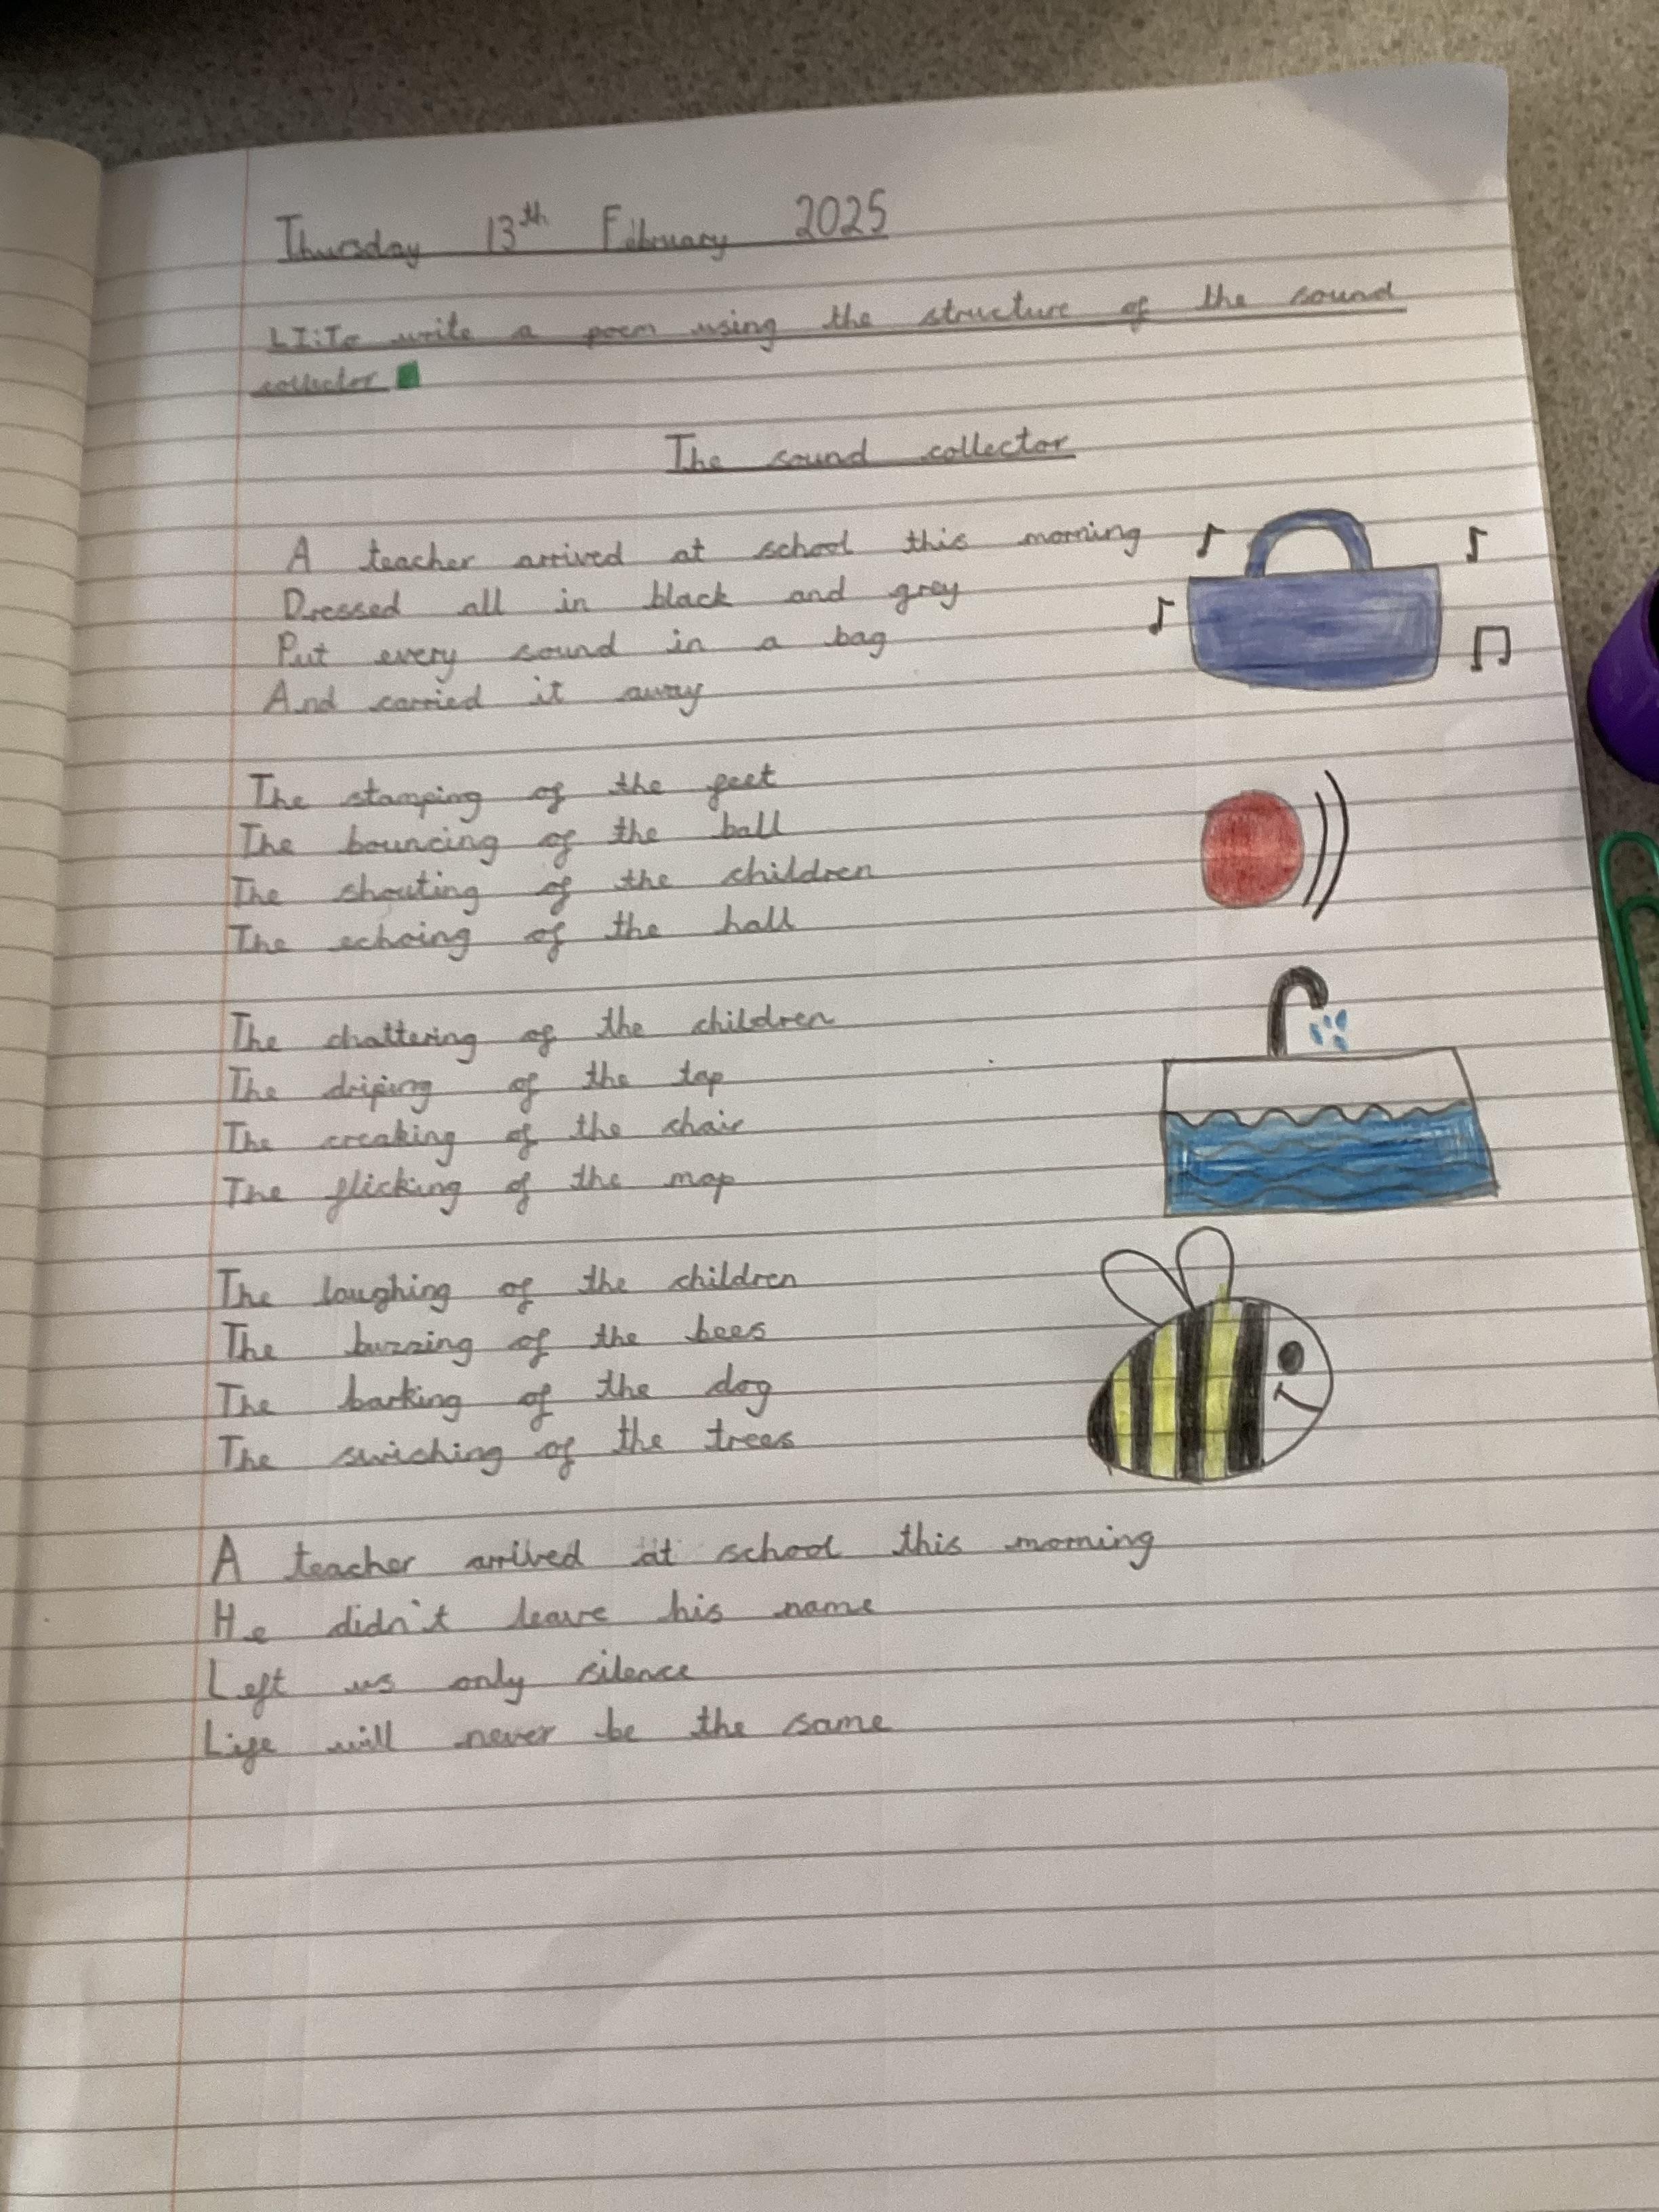 Thursday 13th February 2025
LI:To write a poem using the structure of the sound
collector
The sound collector
A teacher arrived at school this morning
Dressed all in black and grey
Put every sound in a bag
And carried it away
The stamping of the feet
The bouncing of the ball
The shouting of the children
The echoing of the hall
The chattering of the children
The driping of the tap
The creaking of the chair
The flicking of the map
The laughing of the children
The buzzing of the bees
The barking of the dog
The swishing of the trees
A teacher arrived at school this morning
He didn't leave his name
Left us only silence
Life will never be the same